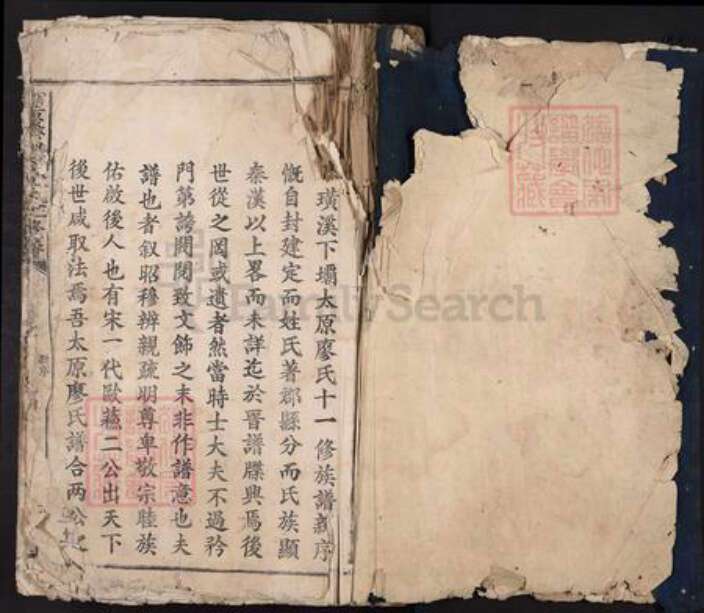 璜溪下壩太原廖氏十一修族譜新序
慨自封建定而姓氏著郡縣分而氏族顯
秦漢以上畧而未詳迄於晉譜牒興焉後
世從之罔或遺者然當時士大夫不過矜
門第誇閥閱致文飾之末非作譜意也夫
譜也者叙昭穆辨親疏明尊卑敬宗睦族
佑啟後人也有宋一代歐蘇二公出天下
後世咸取法焉吾太原廖氏譜合兩公之
FamilySearch